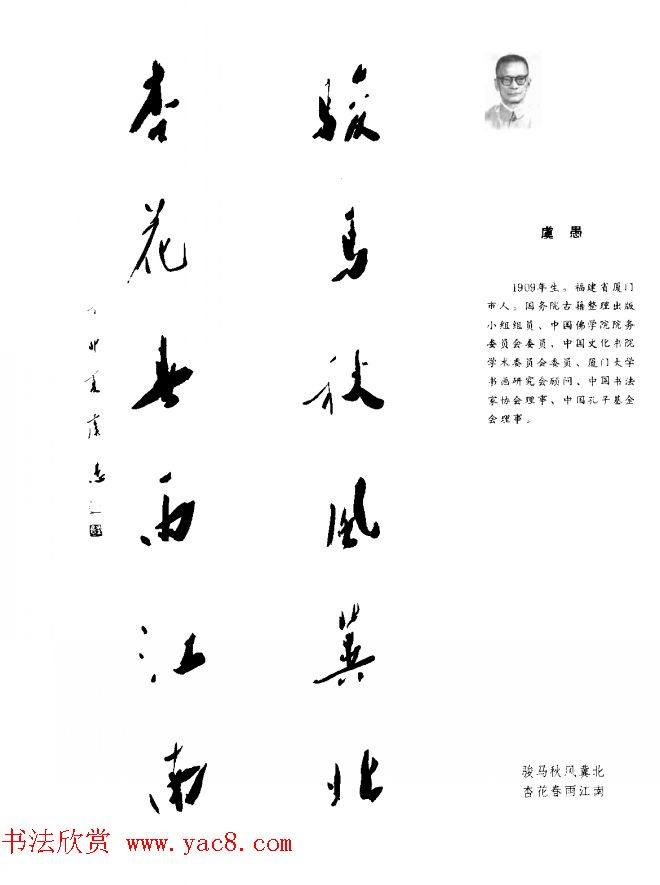 骏马秋风冀北
杏花春雨江南
虞愚
虞 愚
1909年生。福建省厦门
市人。国务院古籍整理出版
小组组员、中国佛学院院务
委员会委员、中国文化书院
学术委员会委员、厦门大学
书画研究会顾问、中国书法
家协会理事、中国孔子基金
会理事。
骏马秋风冀北
杏花春雨江南
书法欣赏 www.yac8.com